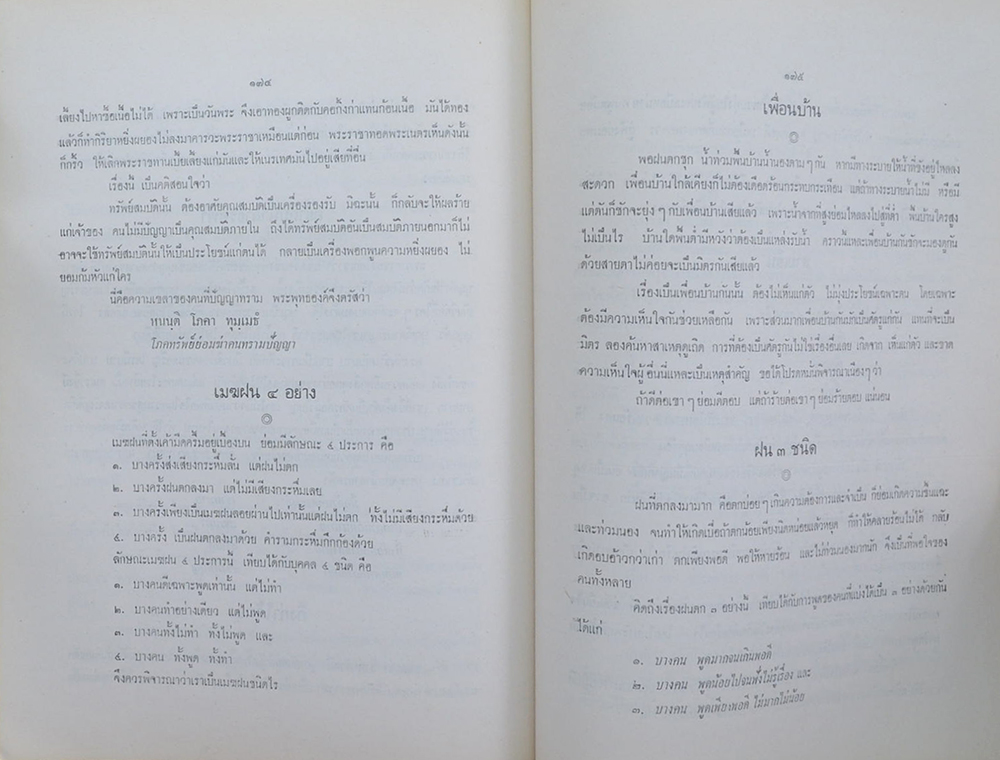 ๑๗๔
เลี้ยงไปหาซื้อเนื้อไม่ได้ เพราะเป็นวันพระ จึงเอาทองผูกติดกับคอกิ้งก่าแทนก้อนเนื้อ มันได้ทอง
แล้วก็ทำกิริยาหยิ่งผยองไม่ลงมาคารวะพระราชาเหมือนแต่ก่อน พระราชาทอดพระเนตรเห็นดังนั้น
ก็กริ้ว ให้เลิกพระราชทานเบี้ยเลี้ยงแก่มันและให้เนรเทศมันไปอยู่เสียที่อื่น
เรื่องนี้ เป็นคติสอนใจว่า
ทรัพย์สมบัตินั้น ต้องอาศัยคุณสมบัติเป็นเครื่องรองรับ มิฉะนั้น ก็กลับจะให้ผลร้าย
แก่เจ้าของ คนไม่มีปัญญาเป็นคุณสมบัติภายใน ถึงได้ทรัพย์สมบัติอันเป็นสมบัติภายนอกมาก็ไม่
อาจจะใช้ทรัพย์สมบัตินั้นให้เป็นประโยชน์แก่ตนได้ กลายเป็นเครื่องพอกพูนความหยิ่งผยอง ไม่
ยอมก้มหัวแก่ใคร
นี่คือความเขลาของคนที่ปัญญาทราม พระพุทธองค์จึงตรัสว่า
หนนฺติ โภคา ทุมฺเมธํ
โภคทรัพย์ย่อมฆ่าคนทรามปัญญา
เมฆฝน ๔ อย่าง
เมฆฝนที่ตั้งเค้ามืดครึ้มอยู่เบื้องบน ย่อมมีลักษณะ ๔ ประการ คือ
๑. บางครั้งส่งเสียงกระหึ่มลั่น แต่ฝนไม่ตก
๒. บางครั้งฝนตกลงมา แต่ไม่มีเสียงกระหึ่มเลย
๓. บางครั้งเพียงเป็นเมฆฝนลอยผ่านไปเท่านั้นแต่ฝนไม่ตก ทั้งไม่มีเสียงกระหึ่มด้วย
๔. บางครั้ง เป็นฝนตกลงมาด้วย คำรามกระหึ่มกึกก้องด้วย
ลักษณะเมฆฝน ๔ ประการนี้ เทียบได้กับบุคคล ๔ ชนิด คือ
๑. บางคนดีเฉพาะพูดเท่านั้น แต่ไม่ทำ
๒. บางคนทำอย่างเดียว แต่ไม่พูด
๓. บางคนทั้งไม่ทำ ทั้งไม่พูด และ
๔. บางคน ทั้งพูด ทั้งทำ
จึงควรพิจารณาว่าเราเป็นเมฆฝนชนิดไร
๑๗๕
เพื่อนบ้าน
พอฝนตกชุก น้ำท่วมพื้นบ้านน้ำนองตามๆ กัน หากมีทางระบายให้น้ำที่ขังอยู่ไหลลง
สะดวก เพื่อนบ้านใกล้เคียงก็ไม่ต้องเดือดร้อนกระทบกระเทือน แต่ถ้าทางระบายน้ำไม่มี หรือมี
แต่ตันก็ชักจะยุ่งๆ กับเพื่อนบ้านเสียแล้ว เพราะน้ำจากที่สูงย่อมไหลลงไปสู่ที่ต่ำ พื้นบ้านใครสูง
ไม่เป็นไร บ้านใดพื้นต่ำมีหวังว่าต้องเป็นแหล่งรับน้ำ คราวนี้แหละเพื่อนบ้านกันชักจะมองดูกัน
ด้วยสายตาไม่ค่อยจะเป็นมิตรกันเสียแล้ว
เรื่องเป็นเพื่อนบ้านกันนั้น ต้องไม่เห็นแก่ตัว ไม่มุ่งประโยชน์เฉพาะตน โดยเฉพาะ
ต้องมีความเห็นใจกันช่วยเหลือกัน เพราะส่วนมากเพื่อนบ้านกันมักเป็นศัตรูแก่กัน แทนที่จะเป็น
มิตร ลองค้นหาสาเหตุดูเถิด การที่ต้องเป็นศัตรูกันไม่ใช่เรื่องอื่นเลย เกิดจาก เห็นแก่ตัว และขาด
ความเห็นใจผู้อื่นนี่แหละเป็นเหตุสำคัญ ขอได้โปรดหมั่นพิจารณาเนืองๆ ว่า
ถ้าดีต่อเขาๆ ย่อมดีตอบ แต่ถ้าร้ายต่อเขาๆ ย่อมร้ายตอบ แน่นอน
ฝน ๓ ชนิด
ฝนที่ตกลงมามาก คือตกบ่อยๆ เกินความต้องการและจำเป็น ก็ย่อมเกิดความชื้นแฉะ
และท่วมนอง จนทำให้เกิดเบื่อถ้าตกน้อยเพียงนิดหน่อยแล้วหยุด ก็ทำให้คลายร้อนไม่ได้ กลับ
เกิดอบอ้าวกว่าเก่า ตกเพียงพอดี พอให้หายร้อน และไม่ท่วมนองมากนัก จึงเป็นที่พอใจของ
คนทั้งหลาย
คิดถึงเรื่องฝนตก ๓ อย่างนี้ เทียบได้กับการพูดของคนที่แบ่งได้เป็น ๓ อย่างด้วยกัน
ได้แก่
๑. บางคน พูดมากจนเกินพอดี
๒. บางคน พูดน้อยไปจนฟังไม่รู้เรื่อง และ
๓. บางคน พูดเพียงพอดี ไม่มากไม่น้อย